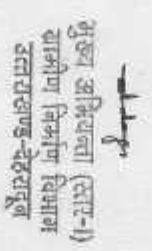 मुख्य अभियन्ता (स्तर-1)
ग्रामीण निर्माण विभाग
उत्तराखण्ड-देहरादून